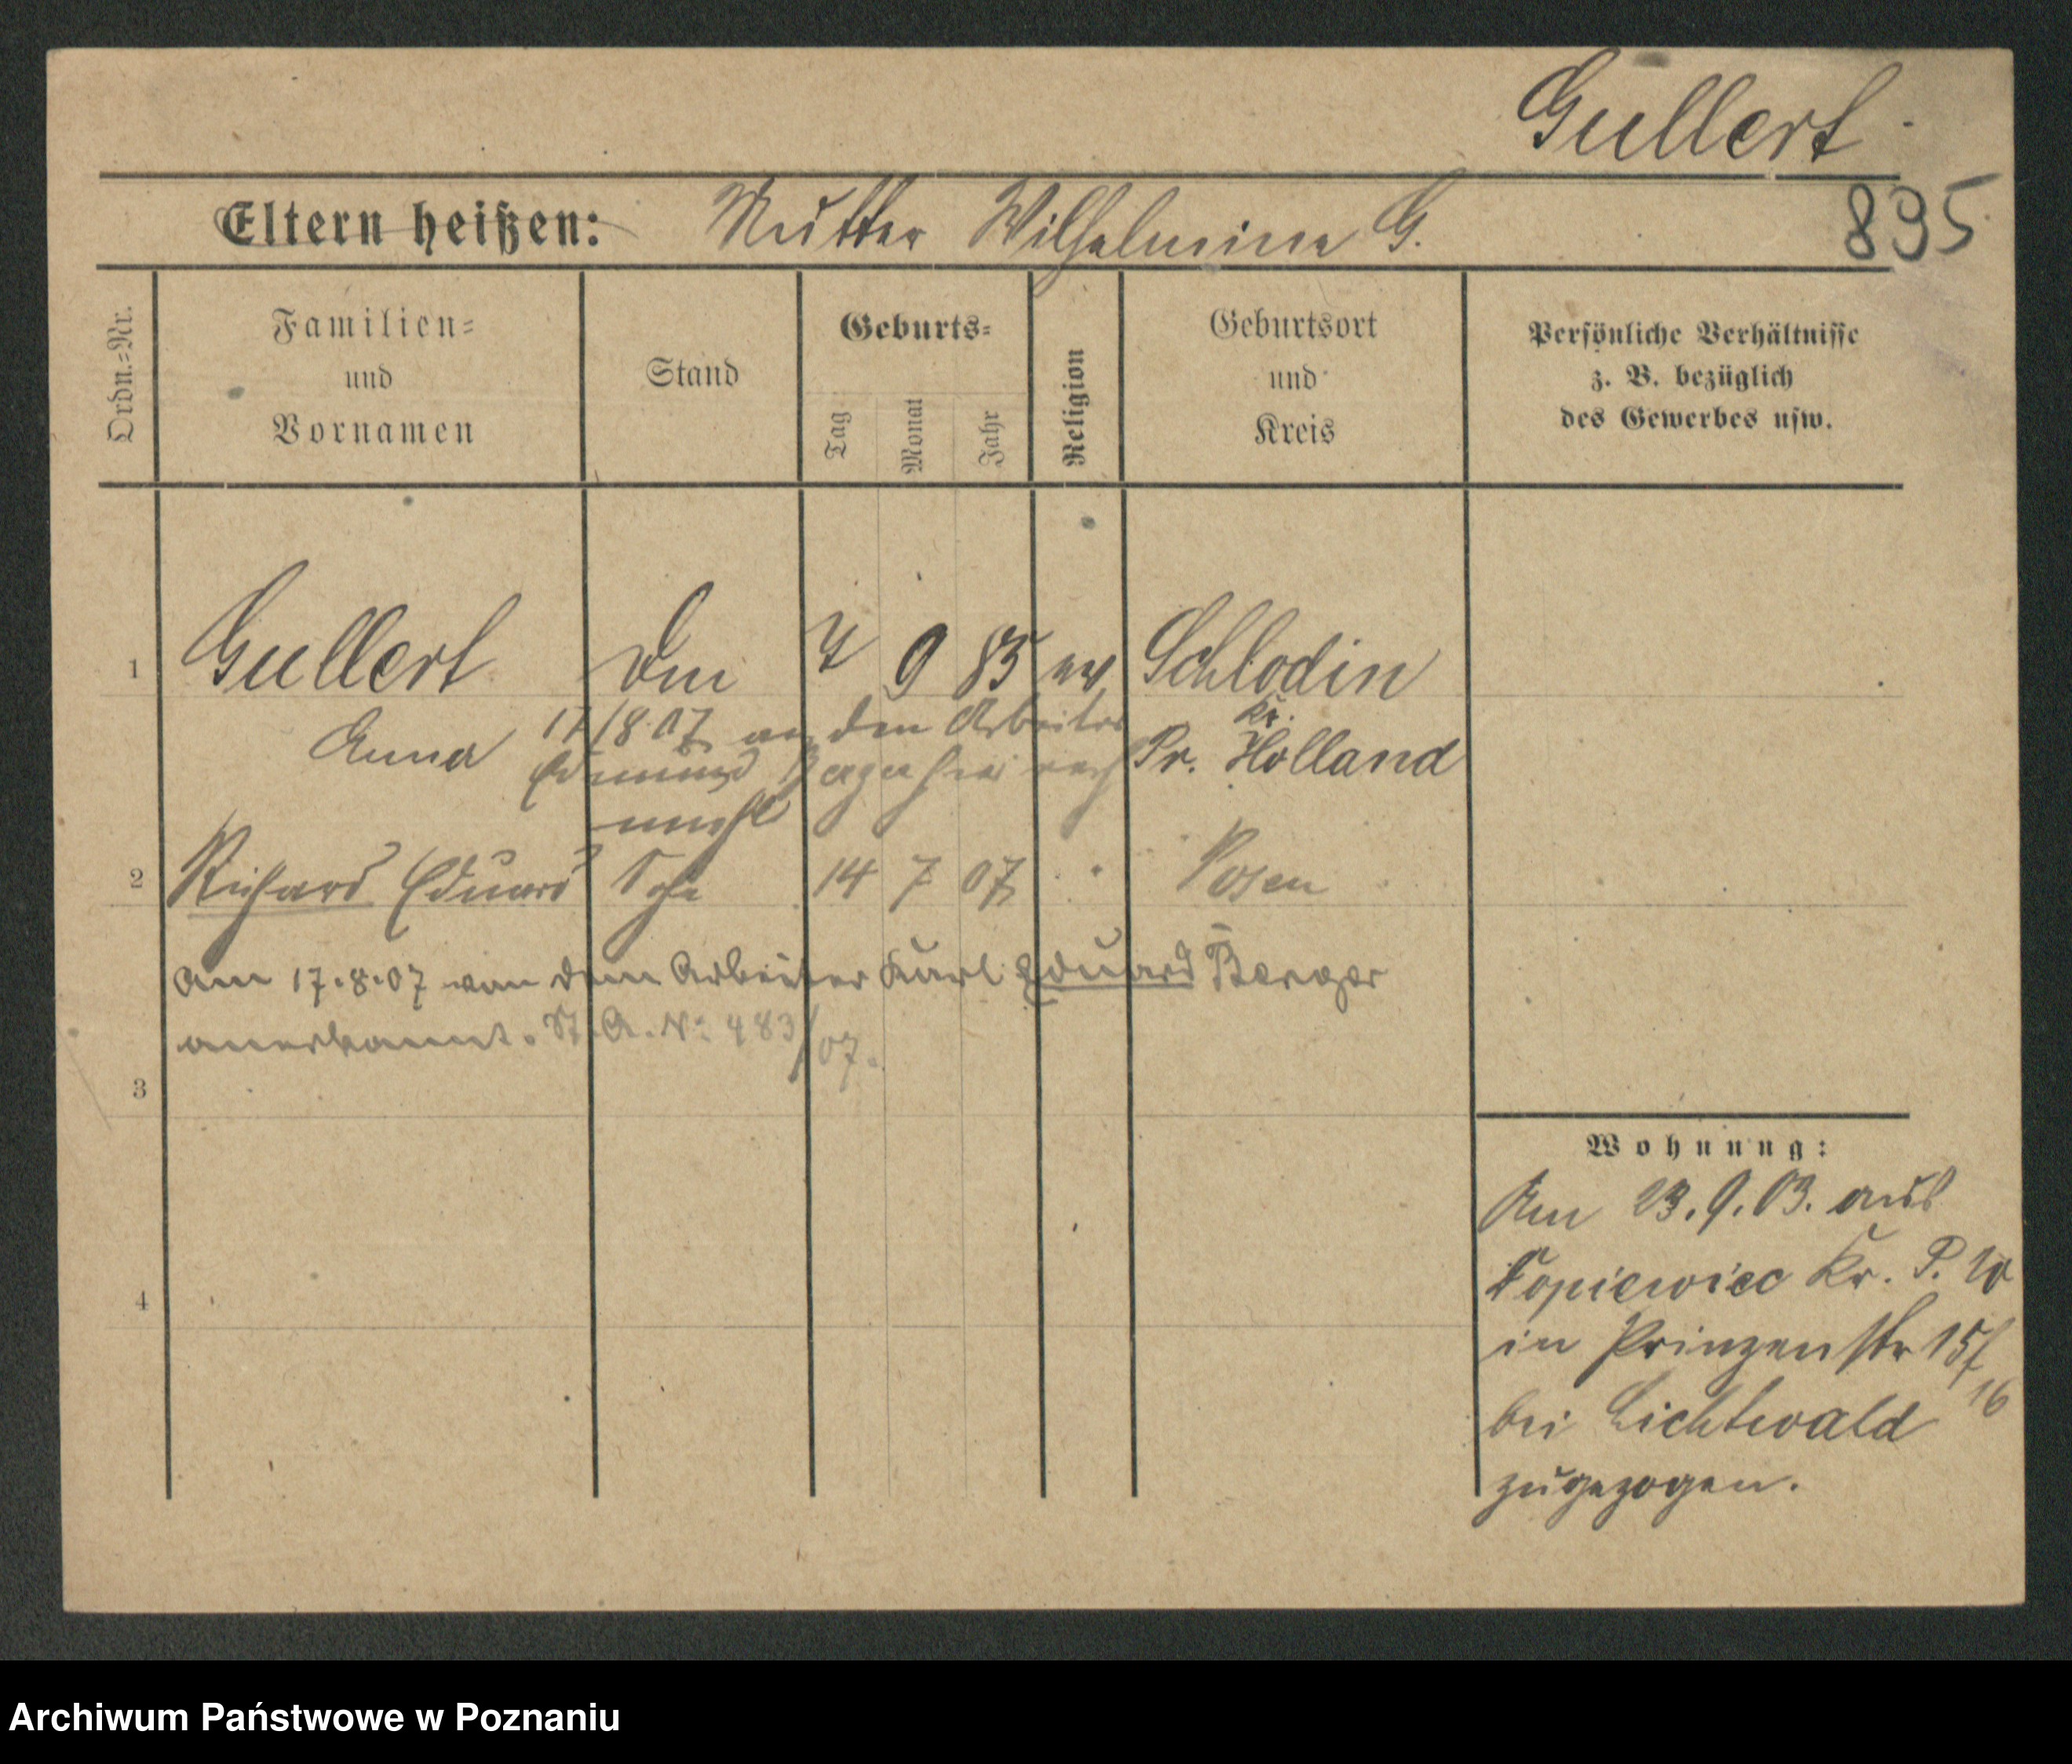 Gullert
Eltern heißen: Mutter Wilhelmine G.
895
Ordn.=Nr.
Familien=
und
Vornamen
Stand
Geburts=
Tag
Monat
Jahr
Religion
Geburtsort
und
Kreis
Persönliche Verhältnisse
z. B. bezüglich
des Gewerbes usw.
1 Gullert 9 85 ev Schlodin
Anna
17/8 07 an den Arbeiter
Kr.
Pr. Holland
Edmund
2 Richard Eduard Sohn 14 7 07 " Posen
Am 17.8.07 von dem Arbeiter Karl Eduard Berger
anerkannt. St. A. No 483/07.
3
4
Wohnung:
Am 23.9.03. aus
Kopiewiec Kr. P. W
in Prinzenstr 15/16
bei Lichtwald
zugezogen.
Archiwum Państwowe w Poznaniu